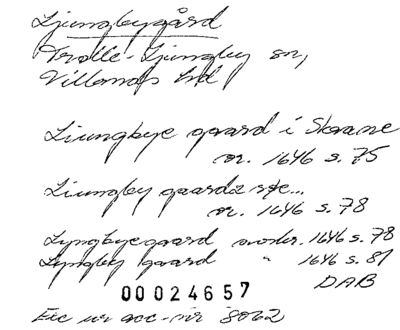 Ljungbygård
Trolle-Ljungby sn,
Villands hd
Liungbye gaard i Skaane
or. 1646 s. 75
Liungby gaardz
or. 1646 s. 78
Lyngbyegaard 1646 s. 78
Lyngbÿ gaard " 1646 s. 81
DAB
00024657
Exc ur acc-nr 8062